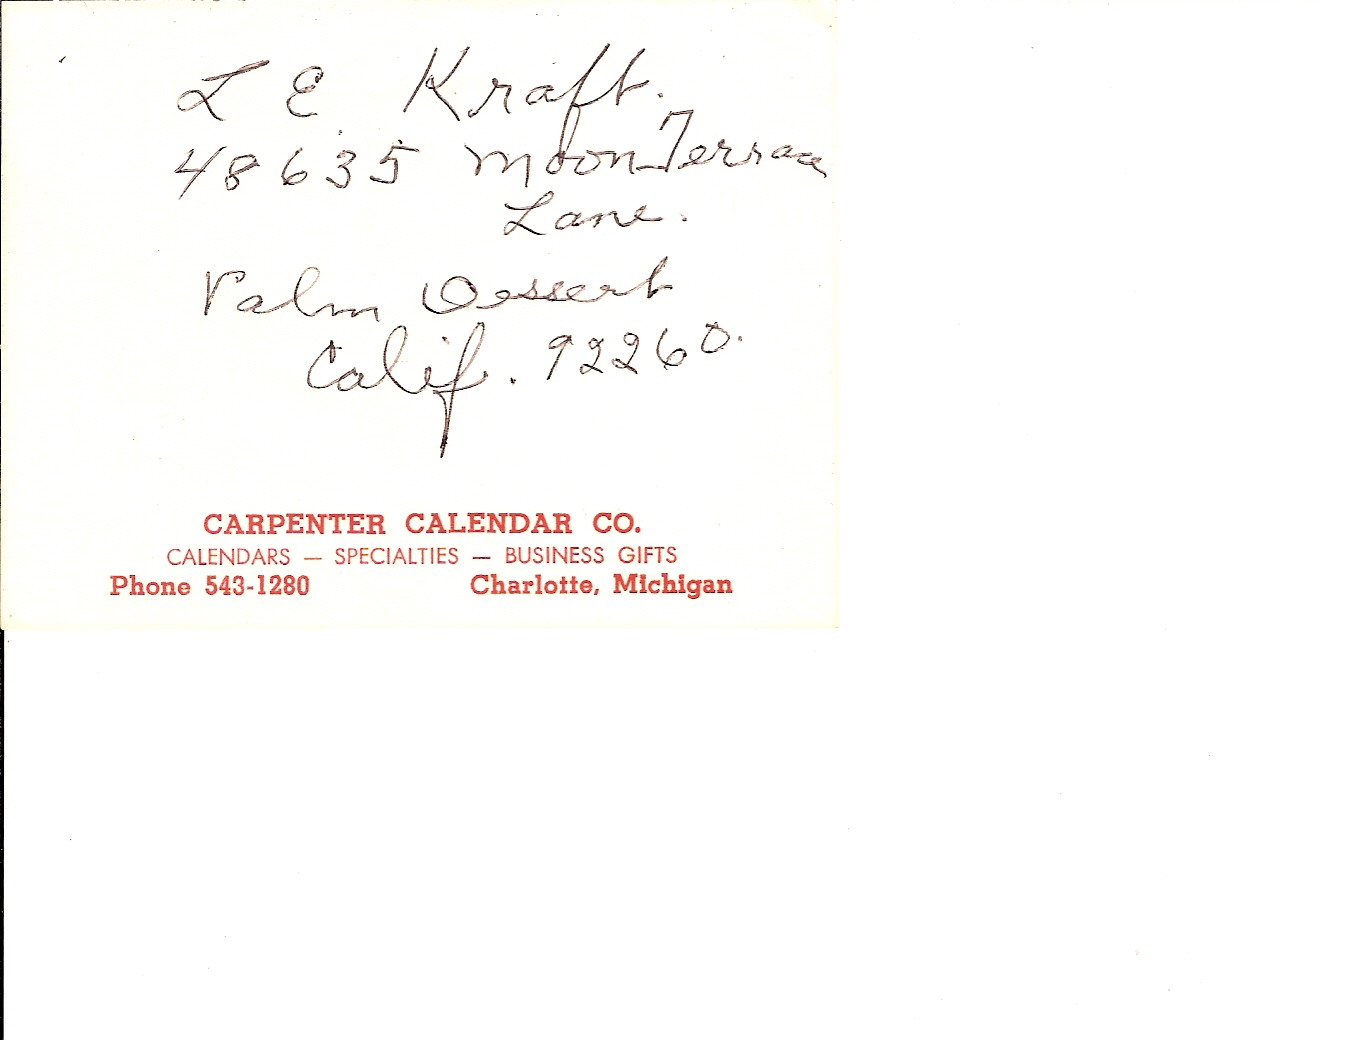 L E Kraft.
48635 Moon Terrace
Lane.
Palm Dessert
Calif. 92260.
CARPENTER CALENDAR CO.
CALENDARS — SPECIALTIES — BUSINESS GIFTS
Phone 543-1280 Charlotte, Michigan